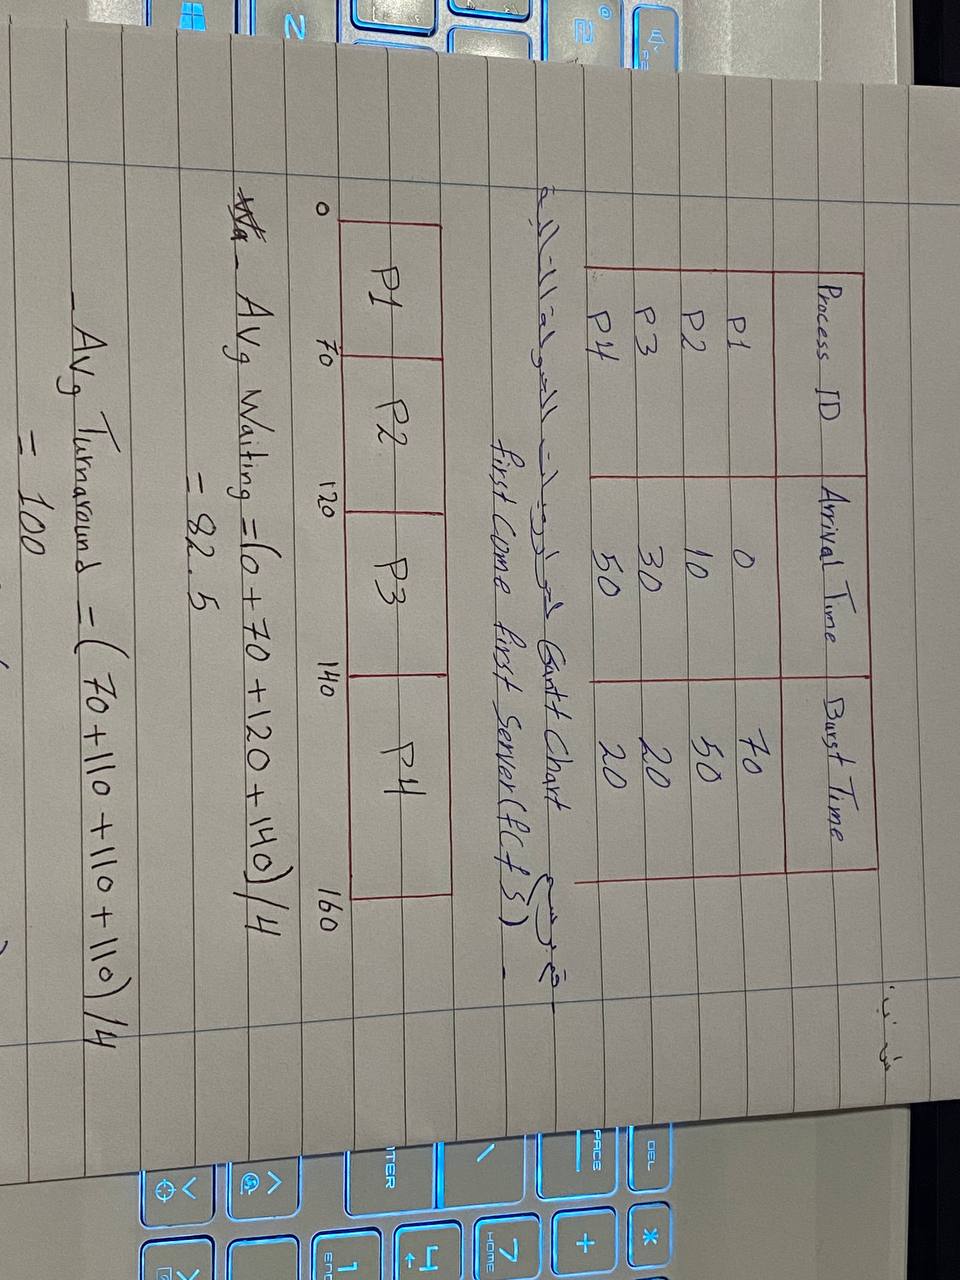 Process ID Arrival Time Burst Time
P1 0 70
P2 10 50
P3 30 20
P4 50 20
قم برسم Gantt Chart لخوارزميات الجدولة التالية
- first Come first Server(fCfS)
P1 P2 P3 P4
0 70 120 140 160
- Avg Waiting =(0+70+120+140)/4
= 82.5
- Avg Turnaround =(70+110+110+110)/4
= 100
DEL
*
PACE
+
@
2
\
7
HOME
4
TER
1
END
Z